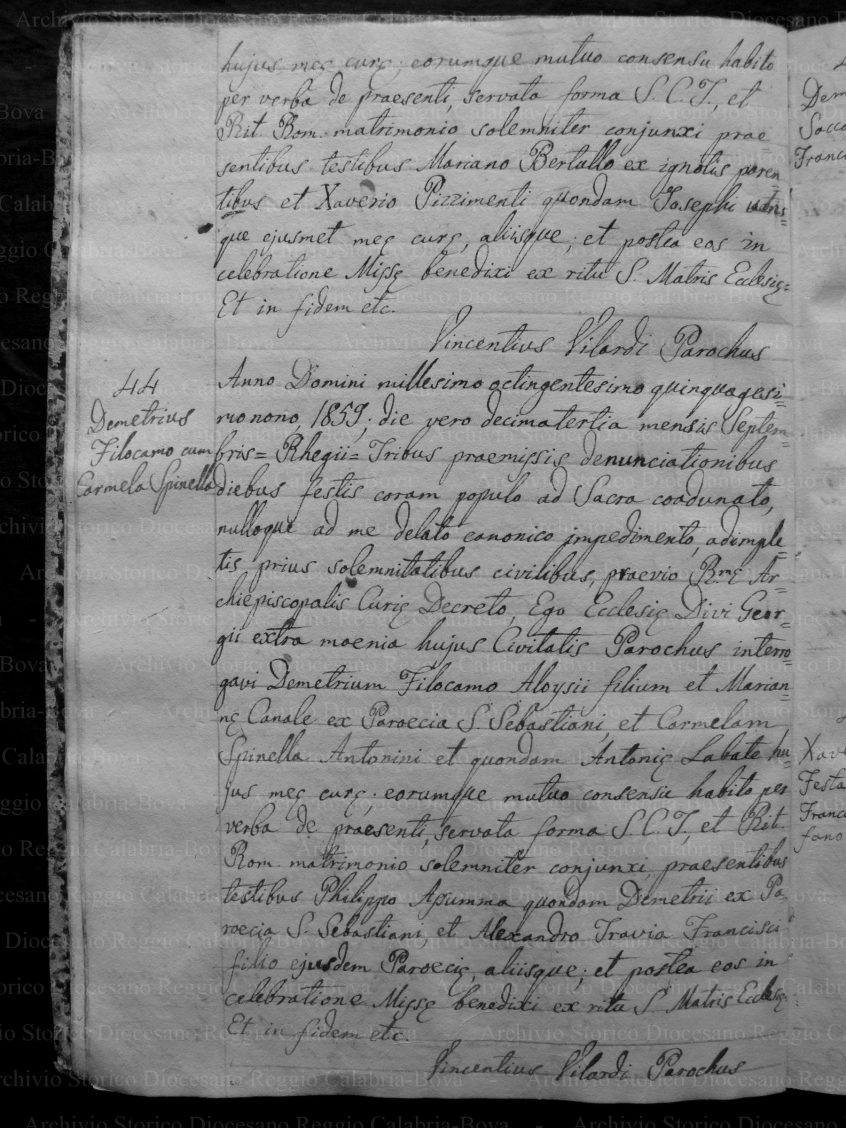 hujus meę curę; eorumque mutuo consensu habito
per verba de praesenti, servata forma S. C. T., et
Rit. Rom. matrimonio solemniter conjunxi prae=
sentibus testibus Mariano Bertullo ex ignotis paren
tibus et Xaverio Pizzimenti quondam Josephi utris=
que ejusmet meę curę, aliisque; et postea eos in
celebratione Missę benedixi ex ritu S. Matris Ecclesię=
Et in fidem etc.
Vincentius Vilardi Parochus
44
Demetrius
Filocamo cum
Carmela Spinella
Anno Domini millesimo octingentesimo quinquagesi=
mo nono, 1859; die vero decimatertia mensis Septem=
bris= Rhegii= Tribus praemissis denunciationibus
diebus festis coram populo ad Sacra coadunato,
nulloque ad me delato canonico impedimento, adimple=
tis prius solemnitatibus civilibus, praevio R.mę Ar=
chiepiscopalis Curię Decreto, Ego Ecclesię Divi Geor=
gii extra moenia hujus Civitatis Parochus interro=
gavi Demetrium Filocamo Aloysii filium et Marian=
nę Canale ex Paroecia S. Sebastiani, et Carmelam
Spinella Antonini et quondam Antonię Labate hu=
jus meę curę; eorumque mutuo consensu habito per
verba de praesenti, servata forma S. C. T., et Rit.
Rom. matrimonio solemniter conjunxi, praesentibus
testibus Philippo Apumma quondam Demetrii ex Pa=
roecia S. Sebastiani, et Alexandro Travia Francisci
filio ejusdem Paroecię, aliisque; et postea eos in
celebratione Missę benedixi ex ritu S. Matris Ecclesię=
Et in fidem etc.
Vincentius Vilardi Parochus